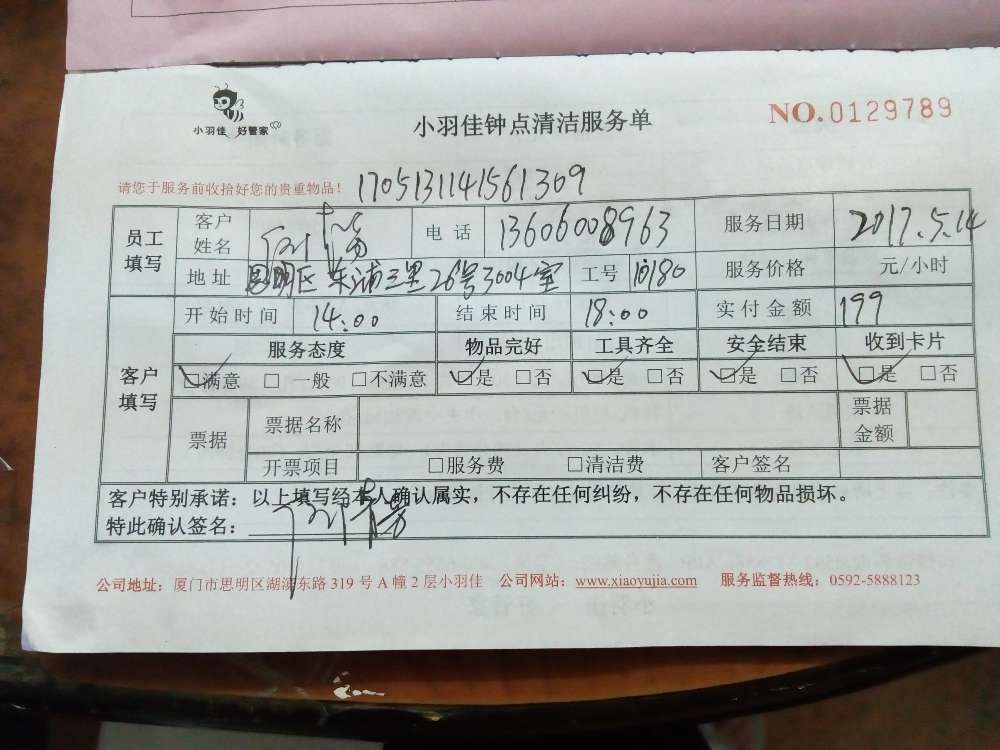 小羽佳 好管家
小羽佳钟点清洁服务单
NO.0129789
请您于服务前收拾好您的贵重物品!
1705131141561309
员工填写 客户姓名 电话 13606008963 服务日期 2017.5.14
地址 思明区东浦三里26号3004室 工号 10180 服务价格 元/小时
客户填写 开始时间 14:00 结束时间 18:00 实付金额 199
服务态度 物品完好 工具齐全 安全结束 收到卡片
□满意 □一般 □不满意 □是 □否 □是 □否 □是 □否 □是 □否
票据 票据名称 票据金额
开票项目 □服务费 □清洁费 客户签名
客户特别承诺:以上填写经本人确认属实,不存在任何纠纷,不存在任何物品损坏。
特此确认签名:
公司地址:厦门市思明区湖滨东路 319 号 A 幢 2 层小羽佳 公司网站:www.xiaoyujia.com 服务监督热线:0592-5888123